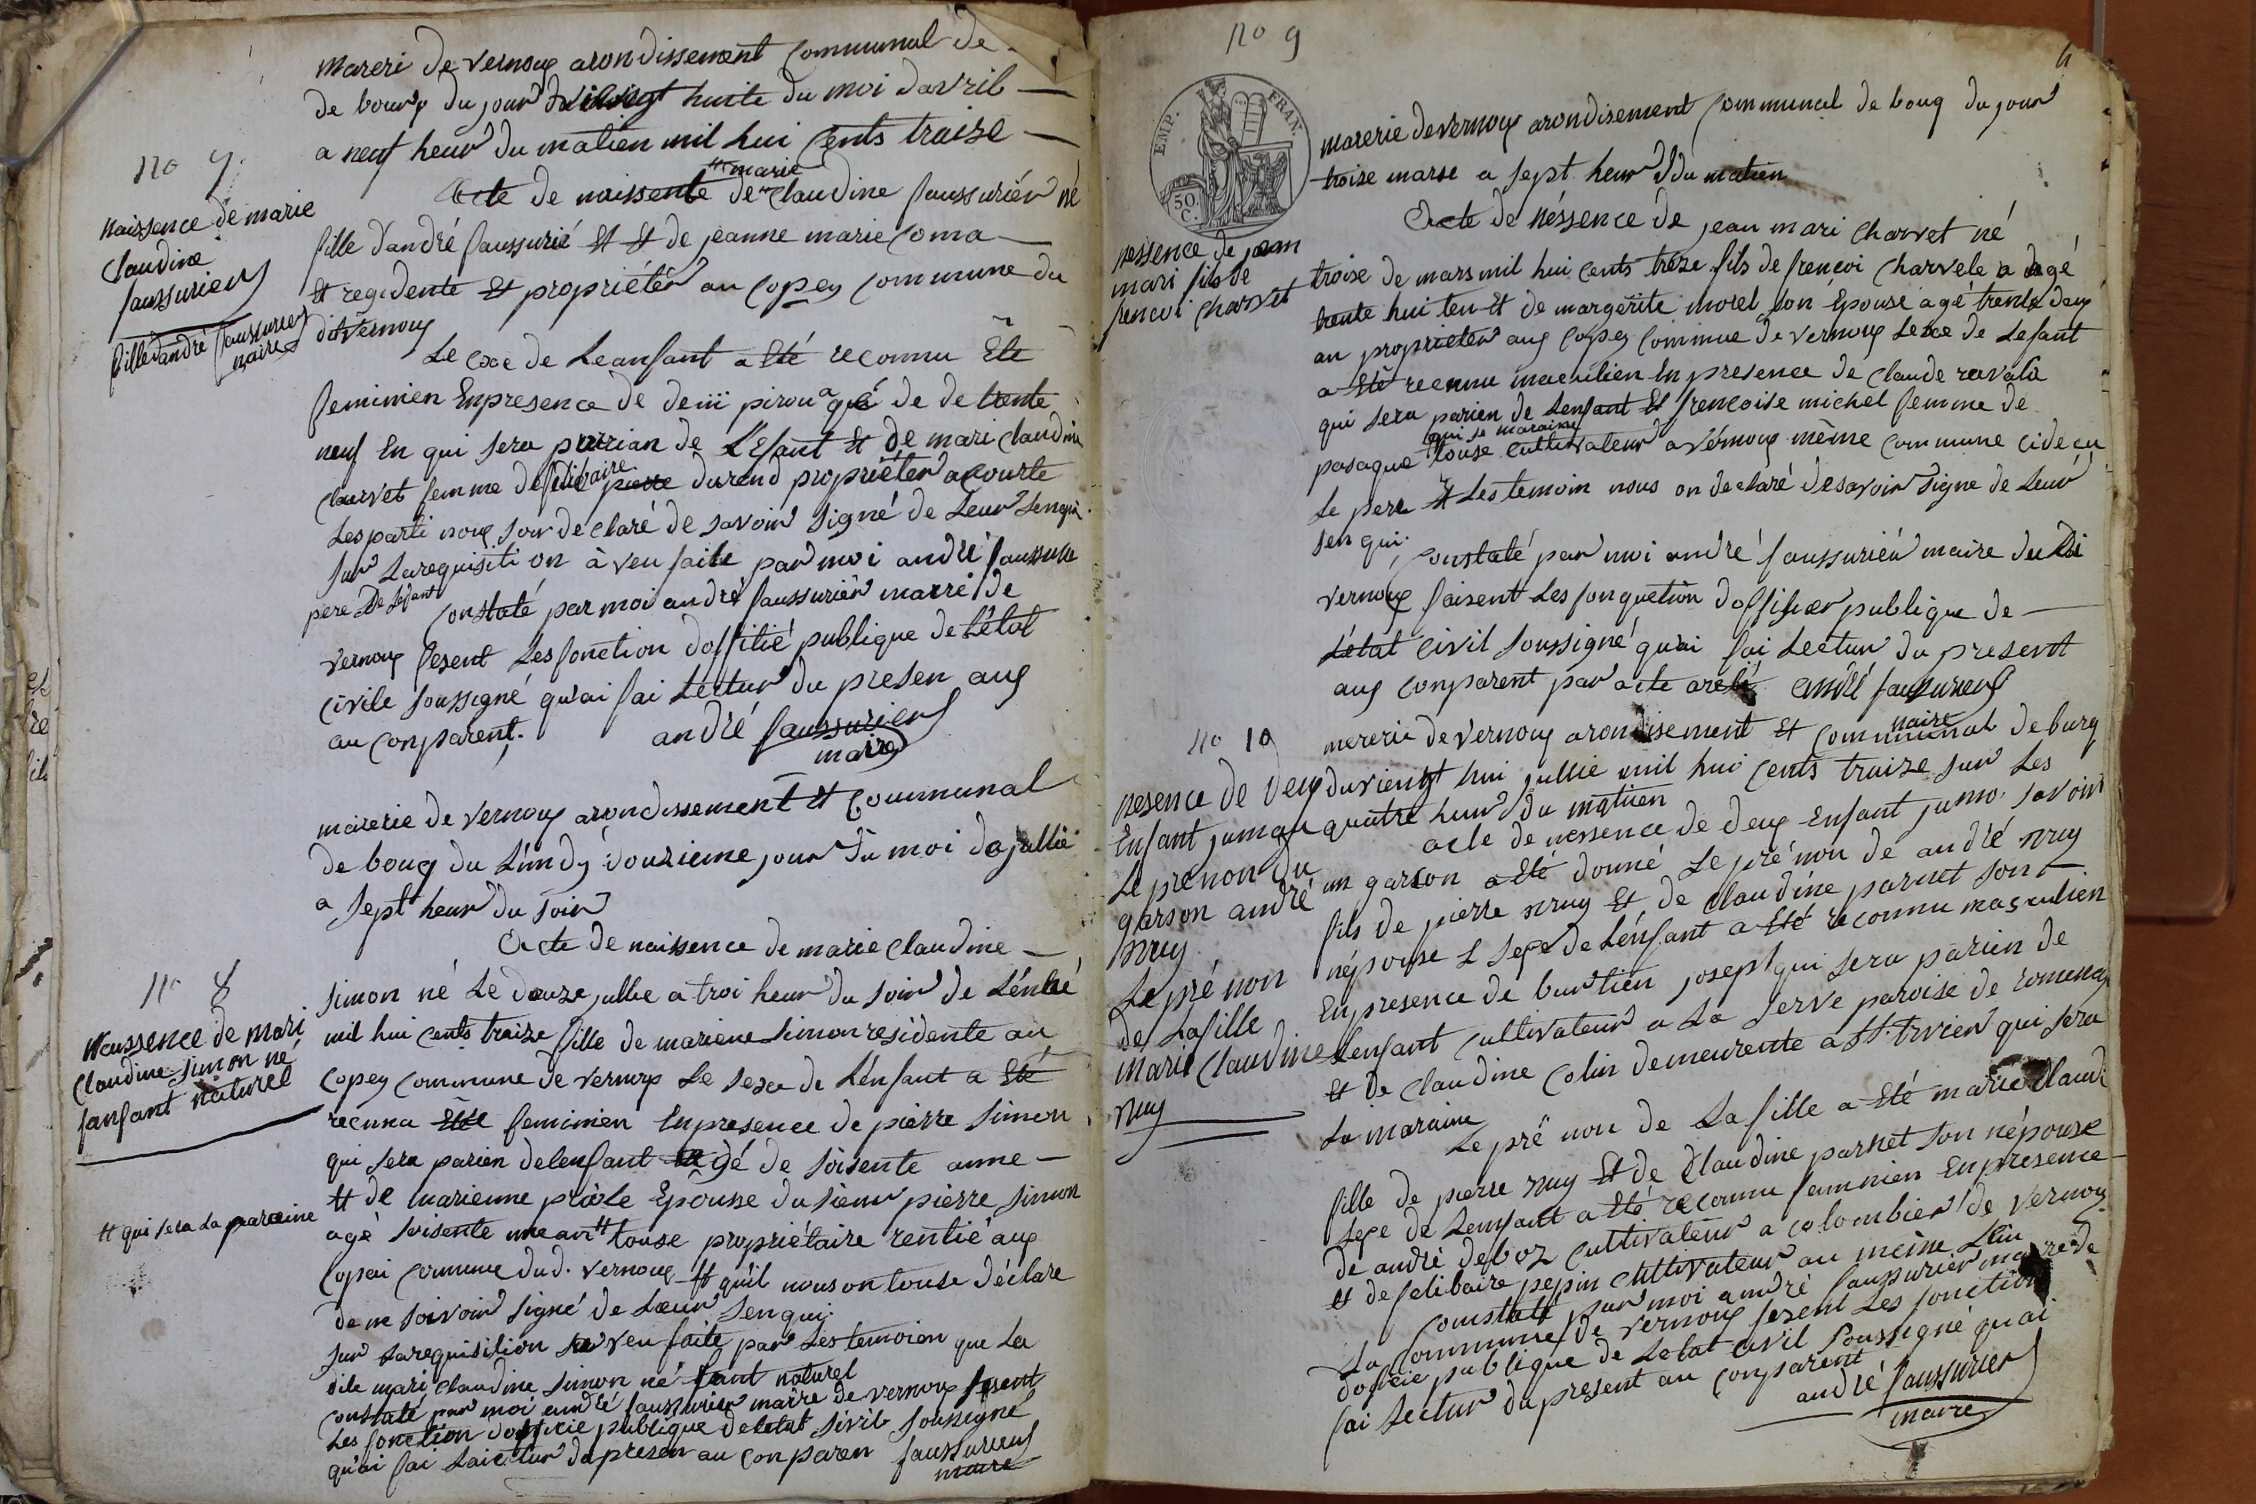 mareri de vernoux arondissement communal de
de bourg du jour vingt huite du moi d'avril
a neuf heur du matien mil hui cents traize
no 7.
naissence de marie
claudine
faussurier
fille d'andré faussurier
maire
# marie
Acte de naissente de claudine faussurier né
fille d'andré faussurié et et de jeanne marie coma
et regidente et propriéter au copey commune du
dit vernoux
Le cexe de Leanfant a Eté reconnu Ete
feminien Enpresence de pirou agé de de trente
neuf En qui sera parrian de L'Efant Et de mari claudine
charvet femme de felibaire pierre durend propriéter a courte
Les parti nous son declaré de savoir signé de Leur Senqui
sur Larequisiti on à veu faite par moi andré faussurie
pere De Léfant
Constaté par moi andré faussuriér marre de
vernoux fesent Les fonction d'offitié publique de L'état
civile soussigné qu'ai fai Lectur du presen aux
au conparent.
andré faussurier
maire
mairerie de vernoux arondissement et Communal
de boug du Lundy douzieme jour du moi de jullié
a sept heur du soir
no 8
Naussence de mari
claudine simon né
fanfant naturel
Acte de naissence de marie claudine
simon né Le douze jullie a troi heur du soir de L'énné
mil hui cents traize fille de mariene simon residente au
copey commune de vernoux Le sexe de L'énfant a Eté
reconna Ette feminien Enpresence de pierre simon
qui sera parien de lenfant agé de soisente anne
# de marienne prole Epousse du sieur pierre simon
# qui sera La paraine
agé soisente une an # touse propriétaire rentié aux
copei commune dud. vernoux # quil nous on touse déclare
de ne soivoir signé de Lœur Senqui
sur Larequisition veu faite par Les temoien que La
dite mari claudine simon né fant naturel
constaté par moi andré faussurier maire de vernoux fesent
Les fonction d'officie publique de letat sivil soussigné
qu'ai fai Laictur du presen au conparen faussurier
maire
no 9
4
EMP. FRAN.
50 C.
marerie devernoux arondisement communal de boug du jour
troize marse a sept heur du matien
nessence de jean
mari fils de
frencoi charvet
Acte de néssence de jean mari charvet né
troise de mars mil hui cents trêze fils de frencoi charvete a agé
trente hui ten Et de margërite morel son épouse agé trente deux
an proprieter aux copey commune de vernoux Le sexe de Lefant
a Eté reconnu macuilien En presence de claude ravala
qui sera parien de Lenfant Et frencoise michel femme de
qui se maraine
pasaque touse cultivateur a vérnoux même commune cideçu
Le pere Et Les temoin nous on declaré de savoir signe de Leur
sen qui.
Constaté par moi andré faussuriér maire du Di
vernoux faisent Les fonquetion d'offiser publique de
L'état civil soussigné qu'ai fai Lectur du present
aux conparent par acte andré faussurier
maire
no 10
mererie de vernoux arondisement Et communal de burg
du vienqt hui jullie mil hui cents traize sur Les
quatre heur du matien
nesence de deux
Enfant jumau
Le prenon du
garson andré
nruy
Le pré non
de Lafille
marie claudine
nuy
acte de nessence de deux Enfant jumo. savoir
un garcon a Eté donné Le pré non de andré nruy
fils de pierre nruy Et de claudine parnet son
népouse L sexe de L'énfant a Eté reconnu masculien
Enpresence de burtien josept qui sera parien de
Lenfant cultivateur a La serve paroise de romenay
Et de claudine colin demeurente a St. trivier qui sera
La maraine
Le pré non de La fille a Eté marie claudi
fille de pierre nuy Et de claudine parnet son népouse
sexe de Lenfant a Eté reconnu feminien Enpresence
de andré deboz cultivateur a colombier de vernoux
et de felibaire pepin cultivateur au meime Lieu
Constaté par moi andré faussurier maire de
La commune de vernoux fesent Les fonction
doficie publique de Letat civil soussigné qu'ai
fai Lectur du present au conparent
andré faussurier
maire